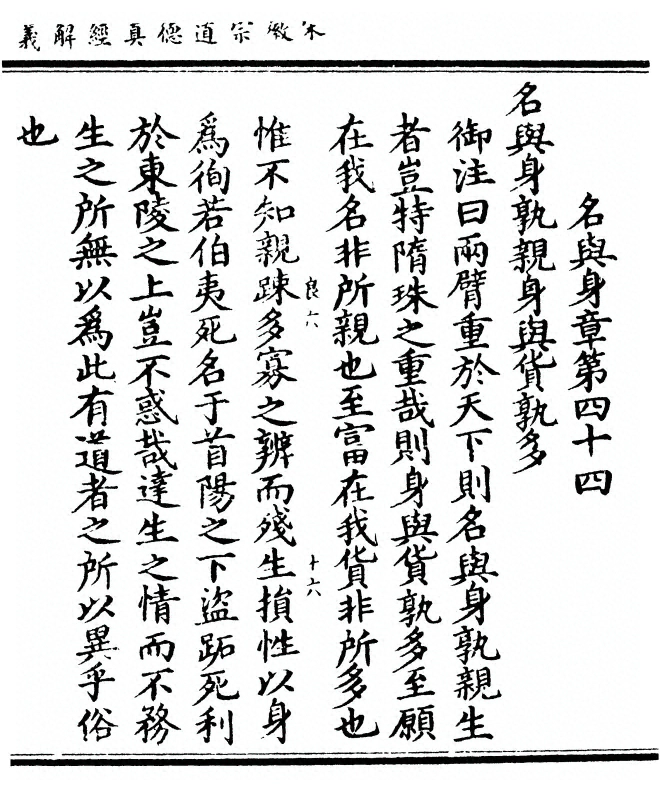 宋徽宗道德真經解義
名與身章第四十四
名與身孰親身與貨孰多
御注曰兩臂重於天下則名與身孰親生
者豈特隋珠之重哉則身與貨孰多至願
在我名非所親也至富在我貨非所多也
良六
十六
惟不知親踈多寡之辨而殘生損性以身
爲徇若伯夷死名于首陽之下盜跖死利
於東陵之上豈不惑哉達生之情而不務
生之所無以爲此有道者之所以異乎俗
也